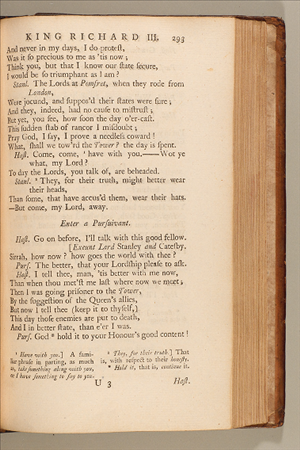 KING RICHARD III. 293
And never in my days, I do protest,
Was it so precious to me as 'tis now;
Think you, but that I know our state secure,
I would be so triumphant as I am?
Stanl. The Lords at Pomfret, when they rode from
London,
Were jocund, and suppos'd their states were sure;
And they, indeed, had no cause to mistrust;
But yet, you see, how soon the day o'er-cast.
This sudden stab of rancor I misdoubt;
Pray God, I say, I prove a needless coward!
What, shall we tow'rd the Tower? the day is spent.
Hast. Come, come, ¹ have with you.——Wot ye
what, my Lord?
To day the Lords, you talk of, are beheaded.
Stanl. ² They, for their truth, might better wear
their heads,
Than some, that have accus'd them, wear their hats.
—But come, my Lord, away.
Enter a Pursuivant.
Hast. Go on before, I'll talk with this good fellow.
[Exeunt Lord Stanley and Catesby.
Sirrah, how now? how goes the world with thee?
Purs. The better, that your Lordship please to ask.
Hast. I tell thee, man, 'tis better with me now,
Than when thou met'st me last where now we meet;
Then I was going prisoner to the Tower,
By the suggestion of the Queen's allies,
But now I tell thee (keep it to thyself,)
This day those enemies are put to death,
And I in better state, than e'er I was.
Purs. God * hold it to your Honour's good content!
¹ Have with you.] A fami-
liar phrase in parting, as much
as, take something along with you,
or I have something to say to you.
² They, for their truth.] That
is, with respect to their honesty.
* Hold it, that is, continue it.
U 3
Hast.